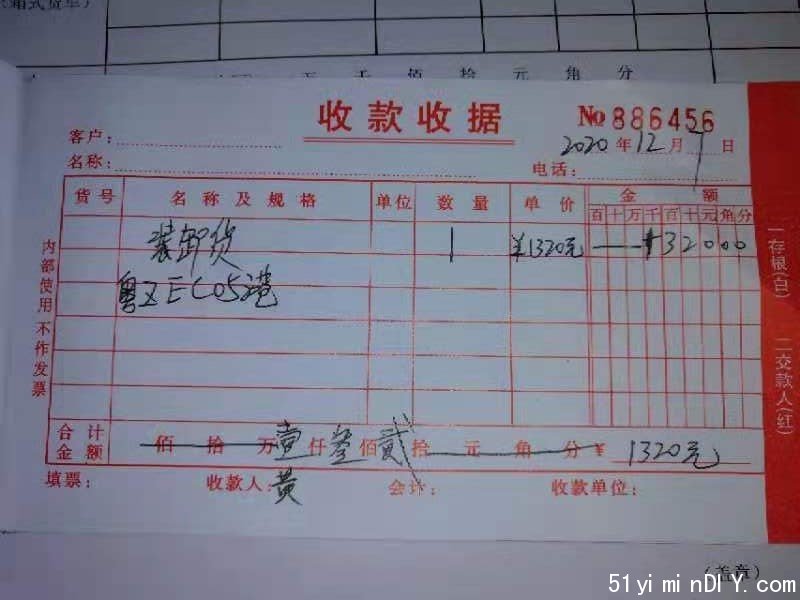 箱式货车)
万 千 佰 拾 元 角 分
收款收据
No 886456
客户:
2020年12月7日
名称:
电话:
货号 名称及规格 单位 数量 单价 金额
百十万千百十元角分
装卸货 1 ¥1320元 132000
粤ZEC05港
内部使用 不作发票
一存根(白) 二交款人(红)
合计金额 佰 拾 万 壹 仟 叁 佰 贰 拾 元 角 分 ¥ 1320元
填票: 收款人: 黄 会计: 收款单位:
(盖章)
51yiminDIY.com